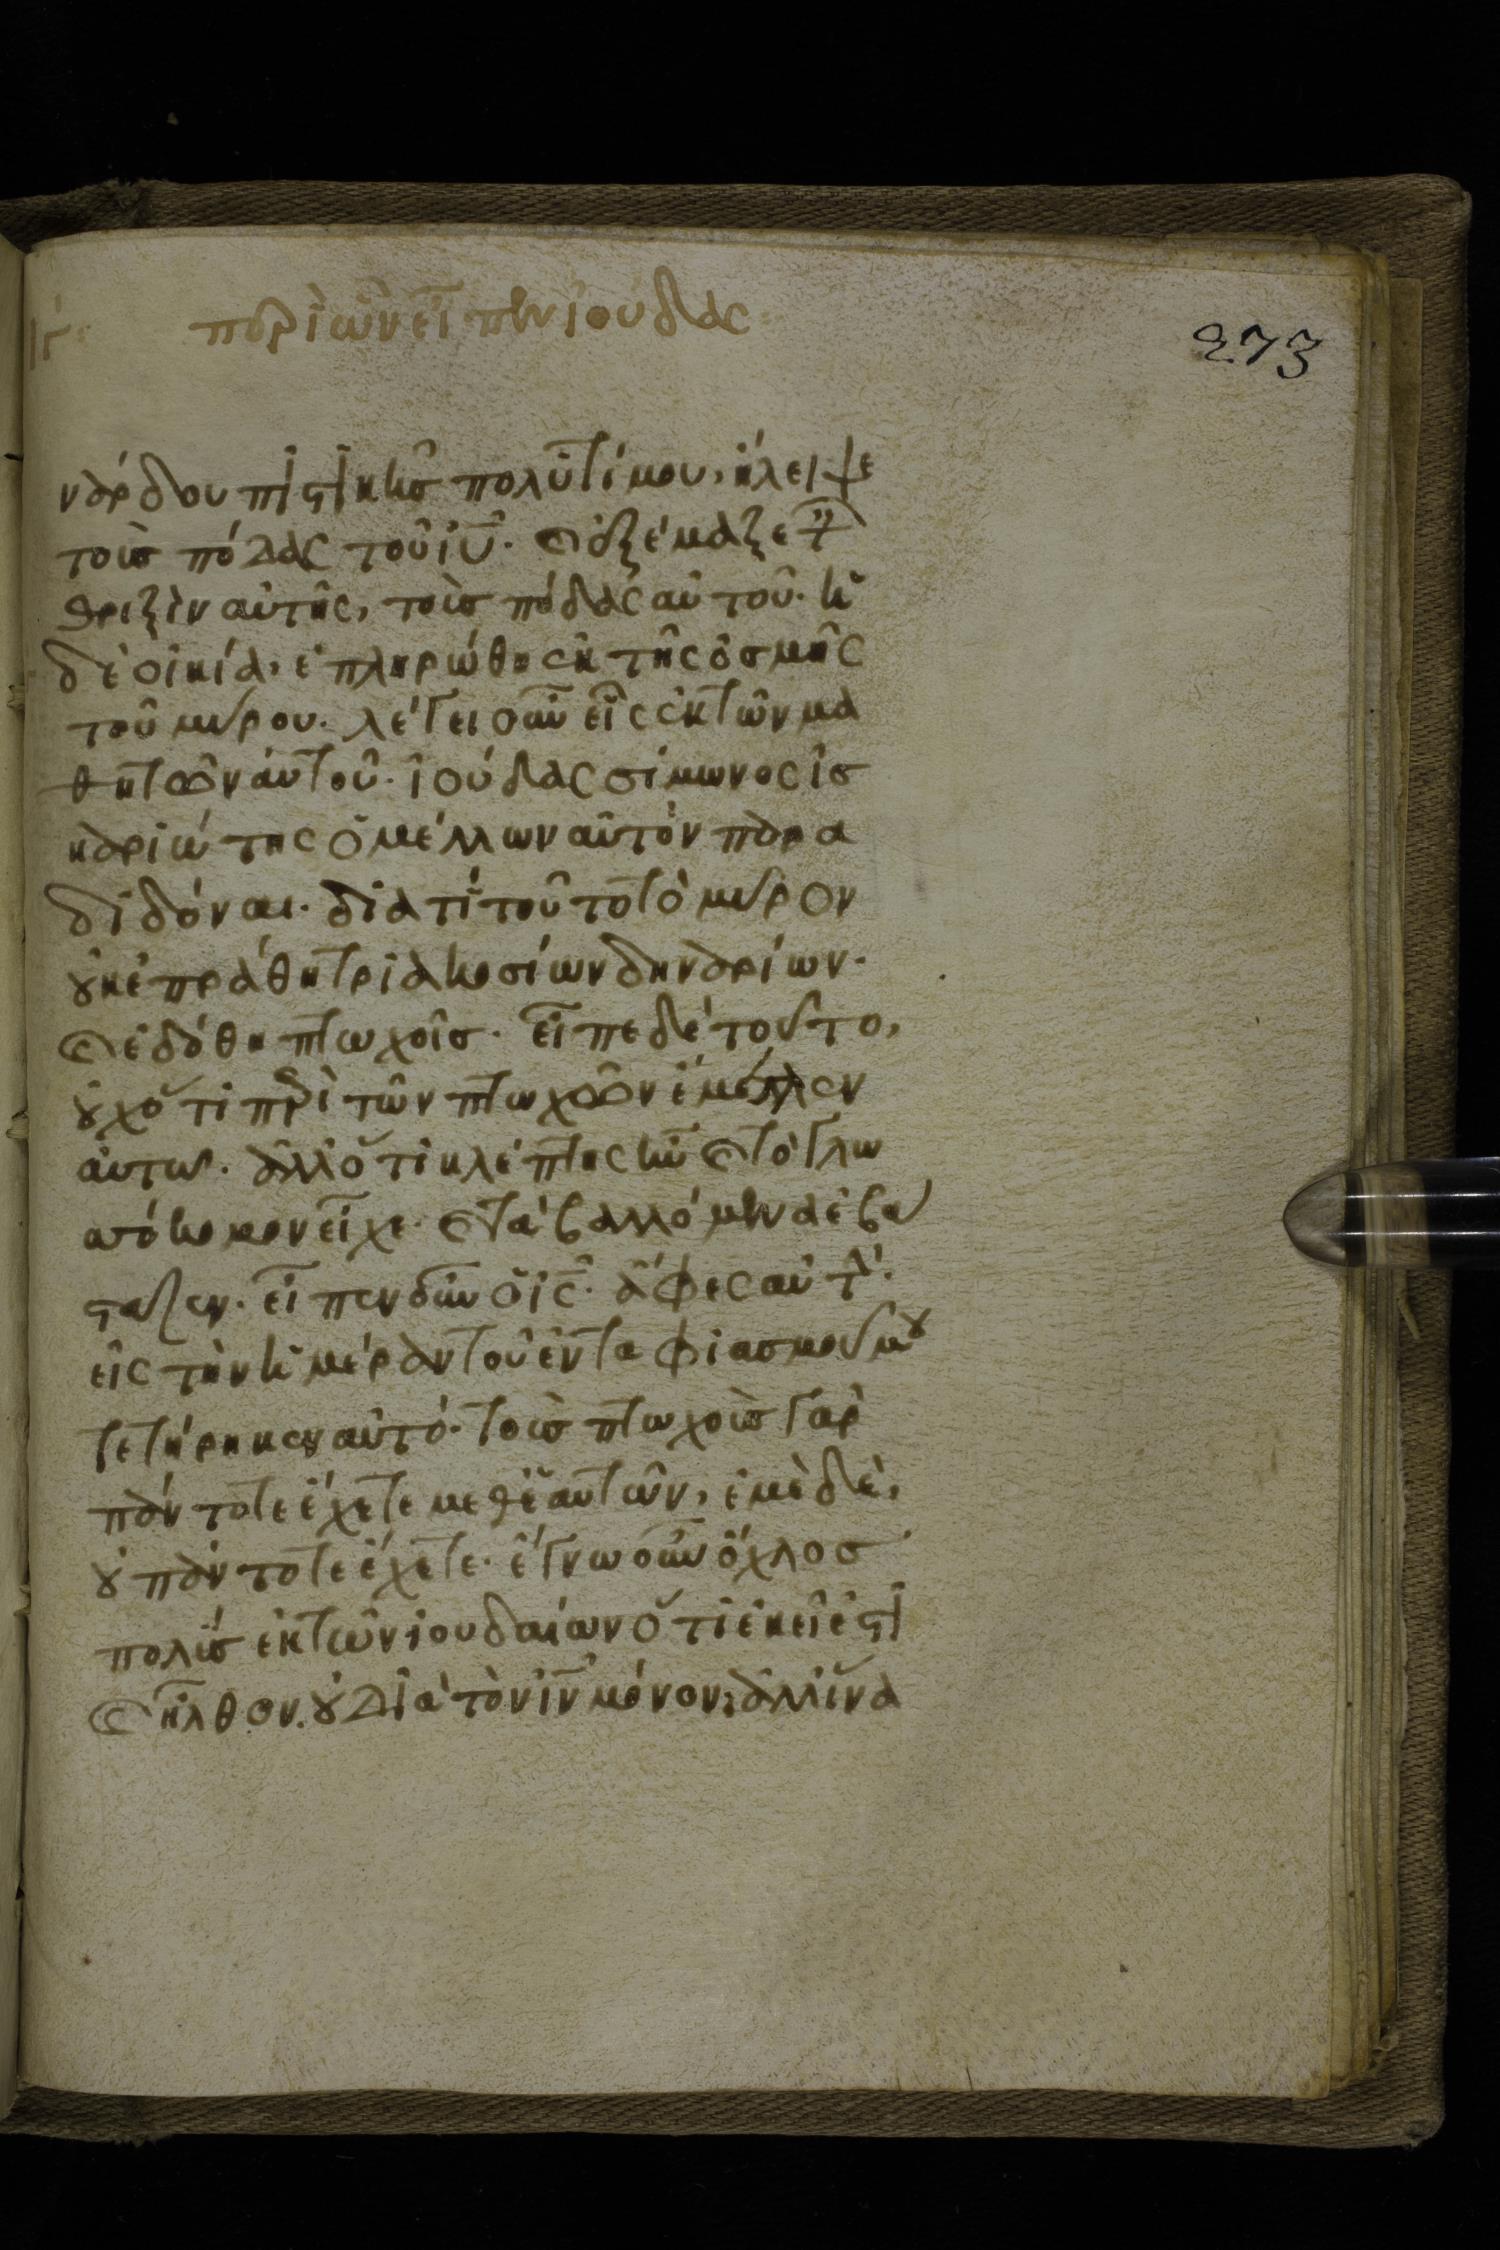 ιγ· περὶ ὧν εἶπεν ἰούδας·
273
νάρδου πιστικῆς πολυτίμου, ἤλειψε
τοὺς πόδας τοῦ ἰυ̅. καὶ ἐξέμαξε τ
θριξὶν αὐτῆς, τοὺς πόδας αὐτοῦ. ἡ
δὲ οἰκία, ἐπληρώθη ἐκ τῆς ὀσμῆς
τοῦ μύρου. λέγει οὖν εἷς ἐκ τῶν μα
θητῶν αὐτοῦ. ἰούδας σίμωνος ἰσ
καριώτης ὁ μέλλων αὐτὸν παρα
διδόναι. διατί τοῦτο τὸ μύρον
οὐκ ἐπράθη τριακοσίων δηναρίων.
καὶ ἐδόθη πτωχοῖς. εἶπε δὲ τοῦτο,
οὐχ ὅτι περὶ τῶν πτωχῶν ἔμελλεν
αὐτῶ. ἀλλ ὅτι κλέπτης ἦν καὶ τὸ γλω
σσόκομον εἶχε. καὶ τὰ βαλλόμενα ἐβά
σταζεν. εἶπεν οὖν ὁ ἰς̅. ἄφες αὐτήν.
εἰς τὴν ἡμέραν τοῦ ἐνταφιασμοῦ μου
τετήρηκεν αὐτό. τοὺς πτωχοὺς γὰρ
πάντοτε ἔχετε μεθ ἑαυτῶν, ἐμὲ δὲ,
οὐ πάντοτε ἔχετε. ἔγνω οὖν ὄχλος
πολὺς ἐκ τῶν ἰουδαίων ὅτι ἐκεῖ ἐστι
καὶ ἦλθον. οὐ διὰ τὸν ἰν̅ μόνον, ἀλλ ἵνα